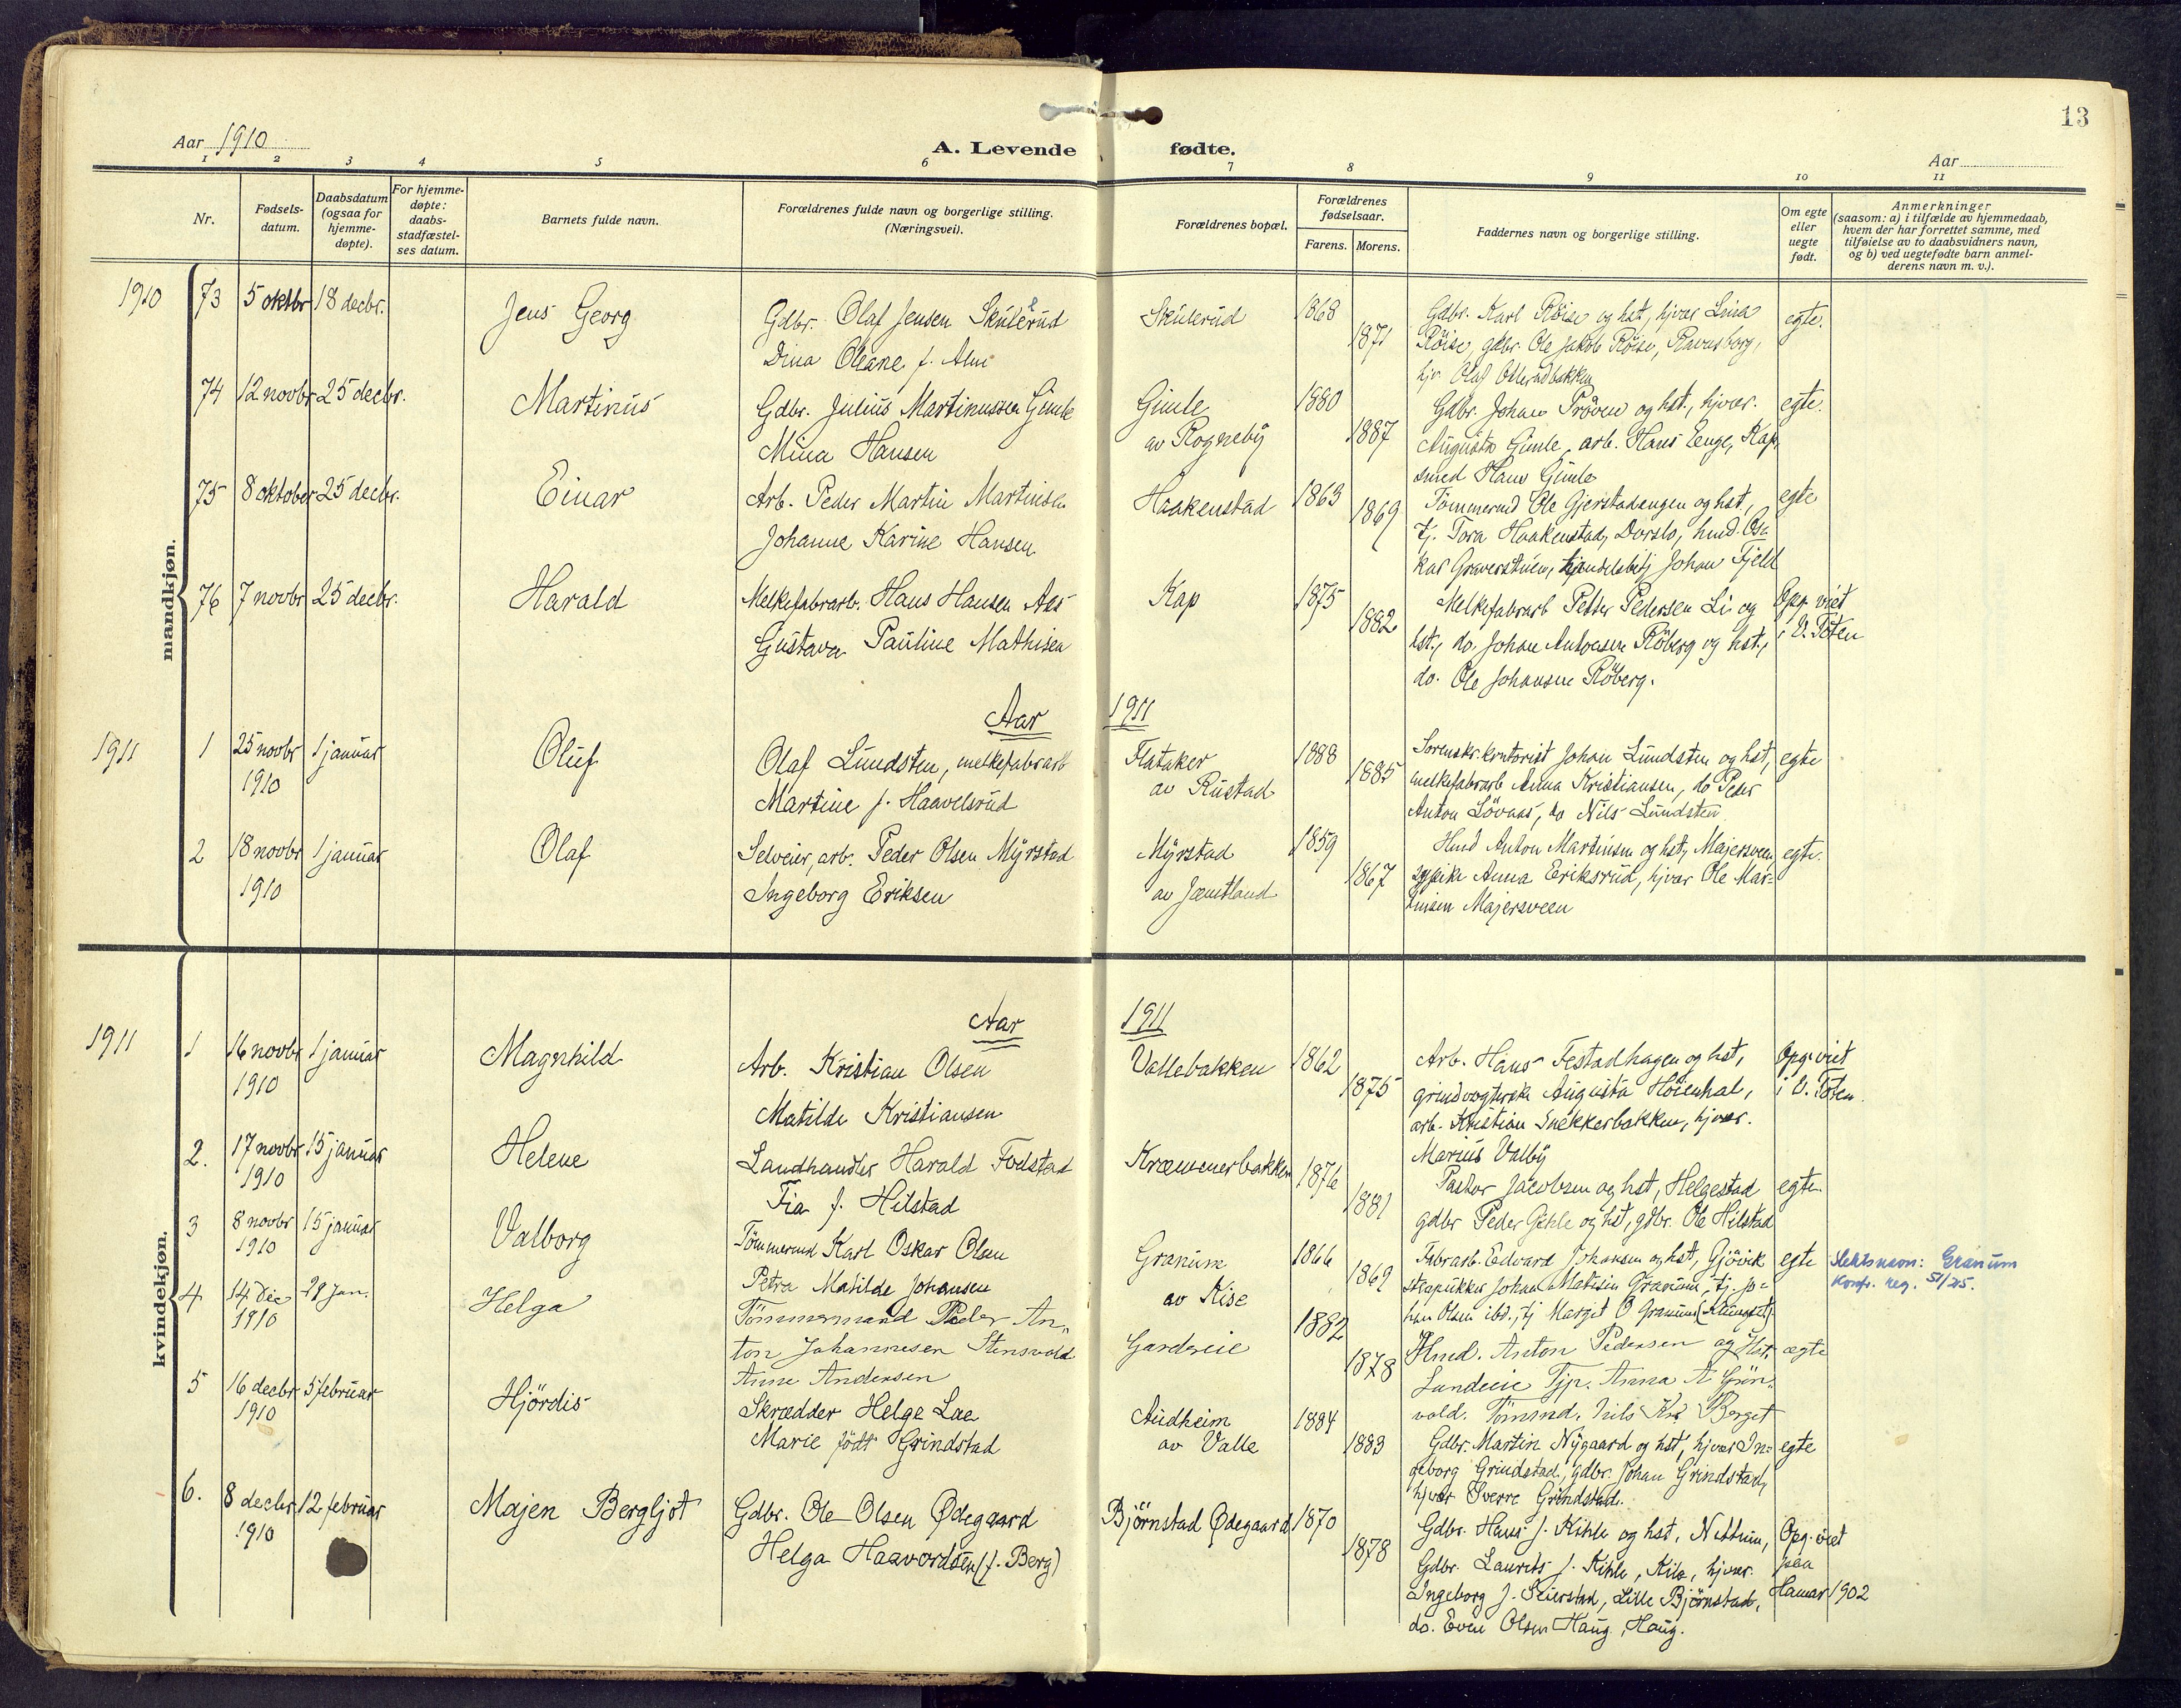 13
Aar 1910
A. Levende fødte.
Aar
1 2 3 4 5 6 7 8 9 10 11
Nr.
Fødsels-
datum.
Daabsdatum
(ogsaa for
hjemme-
døpte).
For hjemme-
døpte:
daabs-
stadfæstel-
ses datum.
Barnets fulde navn.
Forældrenes fulde navn og borgerlige stilling.
(Næringsvei).
Forældrenes bopæl.
Forældrenes
fødselsaar.
Farens. Morens.
Faddernes navn og borgerlige stilling.
Om egte
eller
uegte
født.
Anmerkninger
(saasom: a) i tilfælde av hjemmedaab,
hvem der har forrettet samme, med
tilføielse av to daabsvidners navn,
og b) ved uegtefødte barn anmel-
derens navn m. v.).
mandkjøn.
1910 73 5 oktbr 18 decbr. Jens Georg
Gdbr. Olaf Jensen Skulerud
Dina Oleane f. Alm
Skulerud 1868 1871
Gdbr. Karl Röise og hst, hjvær Lina
Röise, gdbr. Ole Jakob Röise, Ravnsborg,
hjv. Olaf Ollerudbakken
egte.
74 12 novbr 25 decbr. Martinus
Gdbr. Julius Martinussen Gimle
Mina Hansen
Gimle
av Rogneby
1880 1887
Gdbr. Johan Pröven og hst., hjvær.
Augusta Gimle, arb. Hans Enge, Kap,
smed Hans Gimle
egte.
75 8 oktober 25 decbr. Einar
Arb. Peder Martin Martinsen
Johanne Karine Hansen
Haakenstad 1863 1869
Tömmermd Ole Gjerstadengen og hst,
tj. Tora Haakenstad, Dorslo, hmd. Os-
kar Graverstuen, Johan Fjeld
egte
76 7 novbr 25 decbr. Harald
Melkefabrarb. Hans Hansen Aas
Gustava Pauline Mathisen
Kap 1875 1882
Melkefabrarb Petter Pedersen Li og
hst., do. Johan Antonsen Röberg og hst.,
do. Ole Johansen Röberg.
Opg. viet
i V. Toten
Aar 1911
1911 1 25 novbr 1 januar Oluf
1910
Olaf Lundsten, melkefabrarb
Martine f. Haavelsrud
Flataker
av Rustad
1888 1885
Sorenskr.kontorist Johan Lundsten og hst,
melkefabrarb Anna Kristiansen, do Peder
Anton Lövaas, do Nils Lundsten
egte
2 18 novbr 1 januar Olaf
1910
Selveier, arb. Peder Olsen Myrstad
Ingeborg Eriksen
Myrstad
av Jæmtland
1859 1867
Hmd Anton Martinsen og hst, Majersveen
sypike Anna Eriksrud, hjvær Ole Mar-
tinsen Majersveen
egte.
kvindekjøn.
Aar 1911
1911 1 16 novbr 1 januar Magnhild
1910
Arb. Kristian Olsen
Matilde Kristiansen
Vallebakken 1862 1875
Arb. Hans Festadhagen og hst,
grindvogterske Augusta Höienhal,
arb. Kristian Snekkerbakken, hjvær.
Marius Valby
Opg. viet
i V. Toten.
2. 17 novbr 15 januar Helene
1910
Landhandler Harald Fodstad
Fia f. Hilstad
Kræmmerbakken 1876 1881
Pastor Jacobsen og hst, Helgestad
gdbr Peder Gihle og hst, gdbr. Ole Hilstad
egte.
3 8 novbr 15 januar Valborg
1910
Tömmermd Karl Oskar Olsen
Petra Matilde Johansen
Granum
av Kise
1866 1869
Fabrarb. Edvard Johansen og hst, Gjövik
Johan Matisen Granum, tj. Jo-
han Olsen ibd., tj Margit O Granum
egte
Slektsnavn: Granum
Konf. reg. 51/25.
4 14 Dec 29 Jan. Helga
1910
Tömmermand Peder An-
ton Johannesen Stensvold
Anne Andersen
Gardereie 1882 1878
Hmd. Anton Pedersen og Hst.
Lundeie Tjp. Anna A Grön-
vold. Tömmd. Nils Kr. Berget
ægte
5 16 decbr 5 februar Hjördis
1910
Skrædder Helge Lae
Marie født Grindstad
Audheim
av Valle
1884 1883
Gdbr. Martin Nygaard og hst, hjvær In-
geborg Grindstad, gdbr. Johan Grindstad,
hjvær Sverre Grindstad.
egte
6. 8 decbr 12 februar Majen Bergljot
1910
Gdbr. Ole Olsen Ødegaard
Helga Haavordsen (f. Berg)
Björnstad Ødegaard 1870 1878
Gdbr. Hans J. Kihle og hst. Nettum,
Gdbr. Laurits J. Kihle, Kile, hjvær.
Ingeborg J. Seierstad, Lille Björnstad,
do. Even Olsen Haug, Haug.
Opg. viet
paa
Hamar 1902